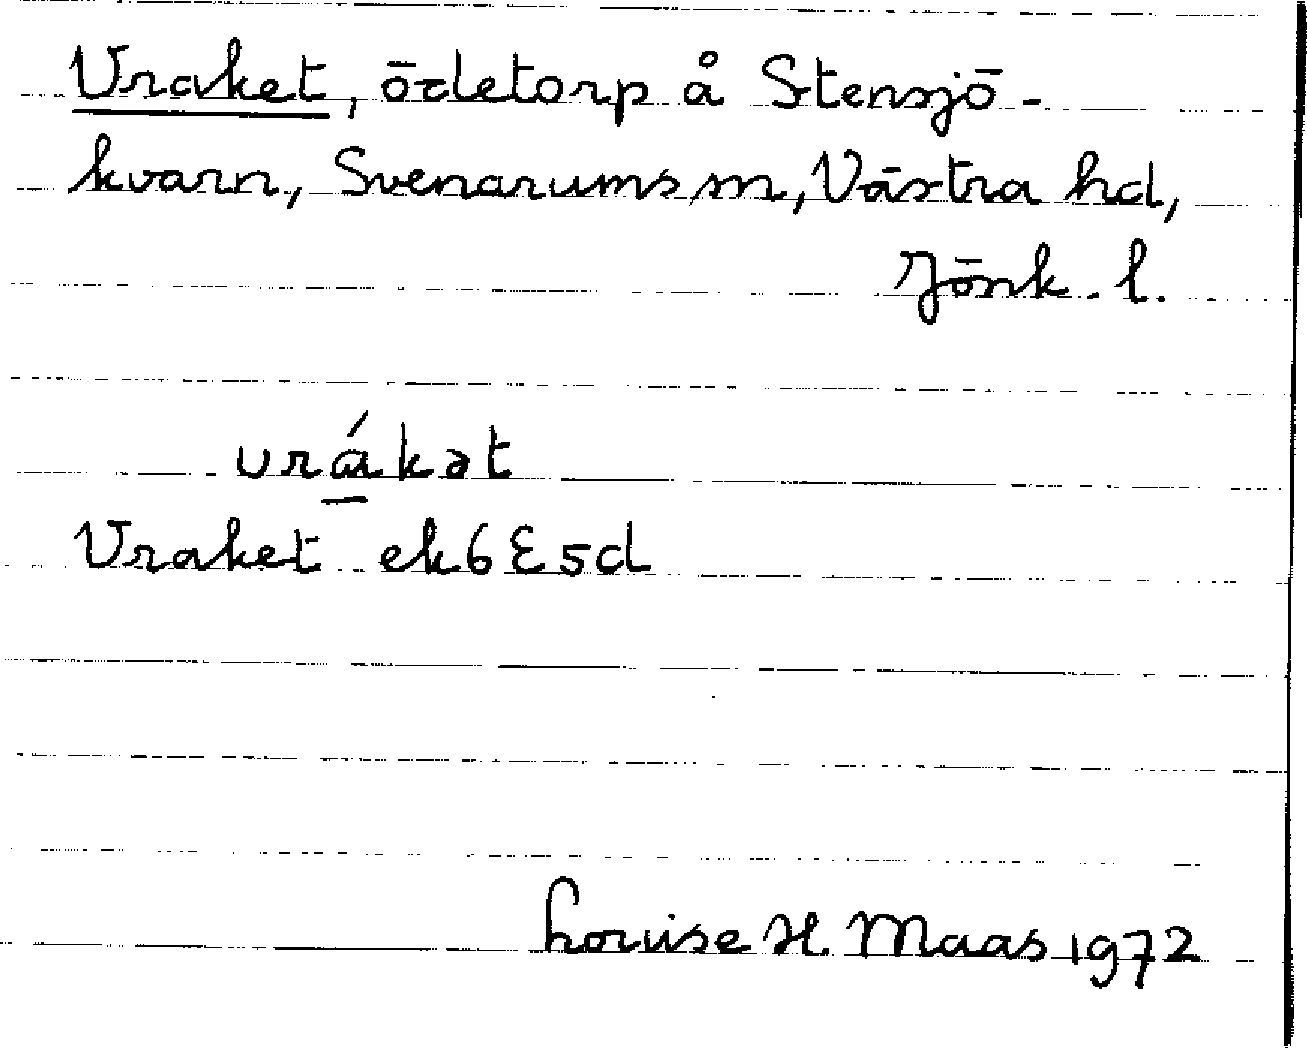 Vraket, ödetorp å Stensjö-
kvarn, Svenarums sn, Västra hd,
Jönk. l.
vrákət
Vraket ek6E5d
Louise H. Maas 1972